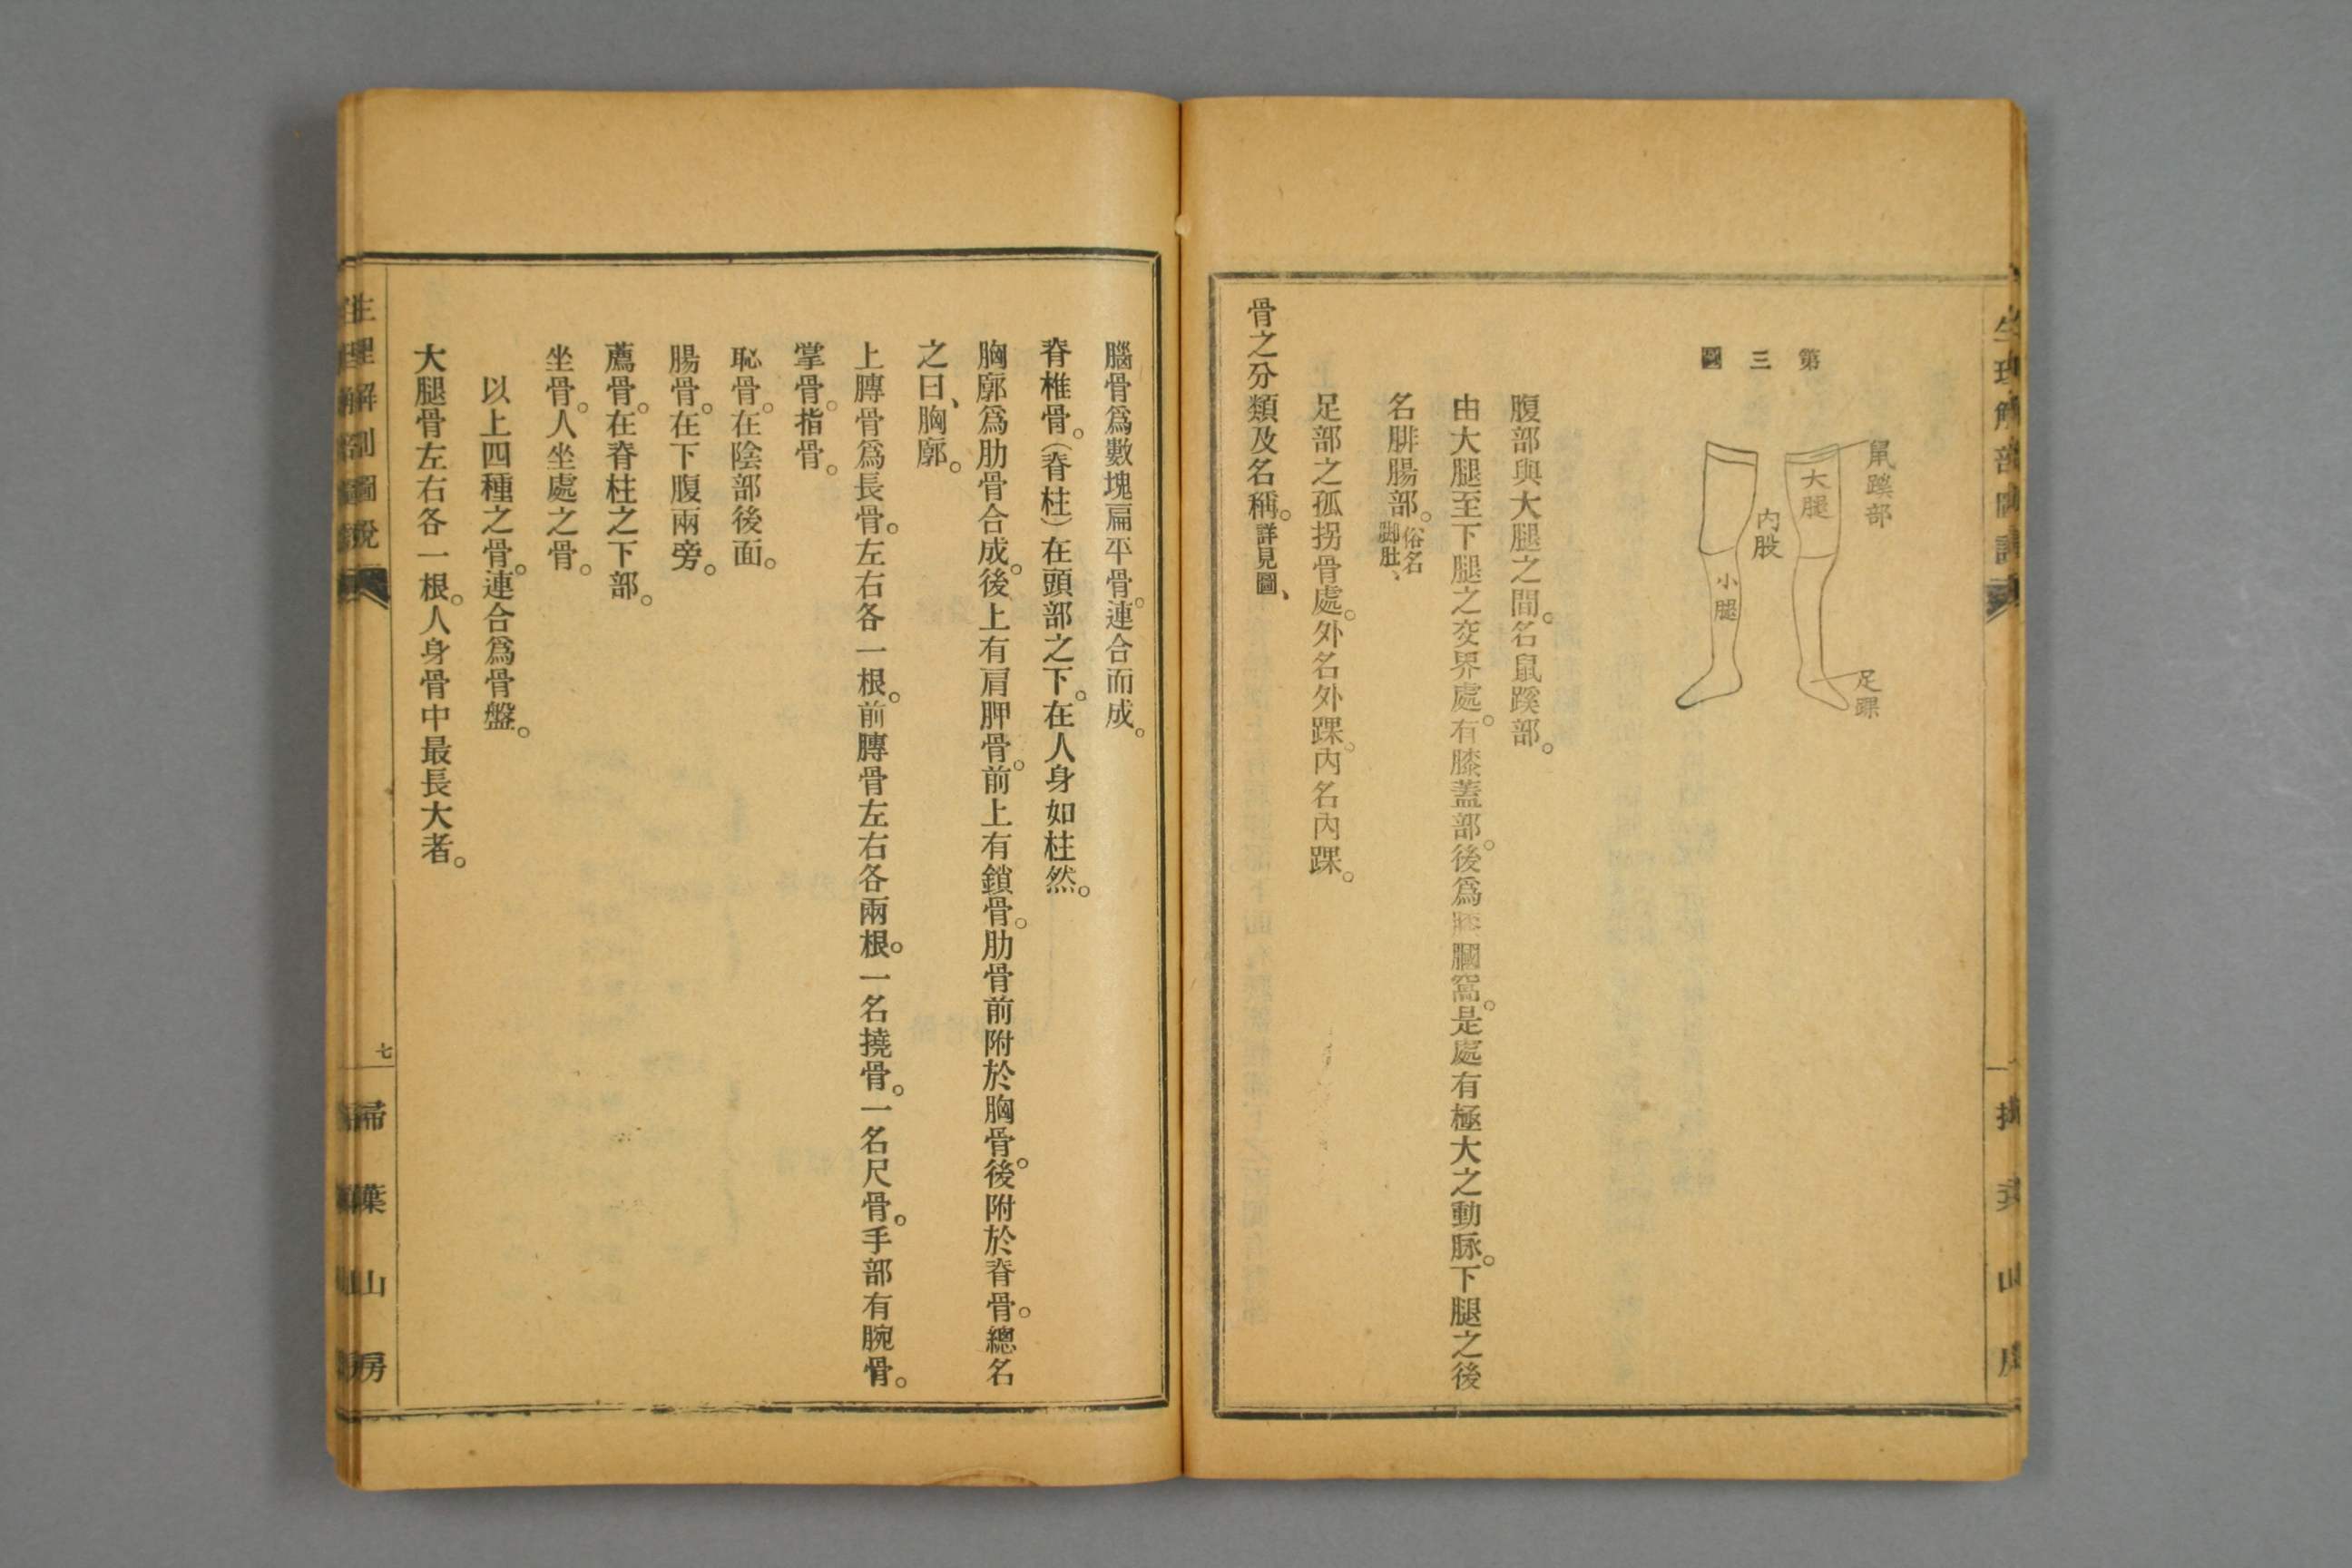 第三圖
鼠蹊部
大腿
內股
小腿
足踝
腹部與大腿之間。名鼠蹊部。
由大腿至下腿之交界處。有膝蓋部。後爲膝膕窩。是處有極大之動脉。下腿之後
名腓腸部。俗名脚肚、
足部之孤拐骨處。外名外踝。內名內踝。
骨之分類及名稱。詳見圖、
掃葉山房
腦骨爲數塊扁平骨。連合而成。
脊椎骨。（脊柱）在頭部之下。在人身如柱然。
胸廓爲肋骨合成。後上有肩胛骨。前上有鎖骨。肋骨前附於胸骨。後附於脊骨。總名
之曰、胸廓。
上膊骨爲長骨。左右各一根。前膊骨左右各兩根。一名撓骨。一名尺骨。手部有腕骨。
掌骨。指骨。
恥骨。在陰部後面。
腸骨。在下腹兩旁。
薦骨。在脊柱之下部。
坐骨。人坐處之骨。
以上四種之骨。連合爲骨盤。
大腿骨左右各一根。人身骨中最長大者。
生理解剖圖說
七
掃葉山房